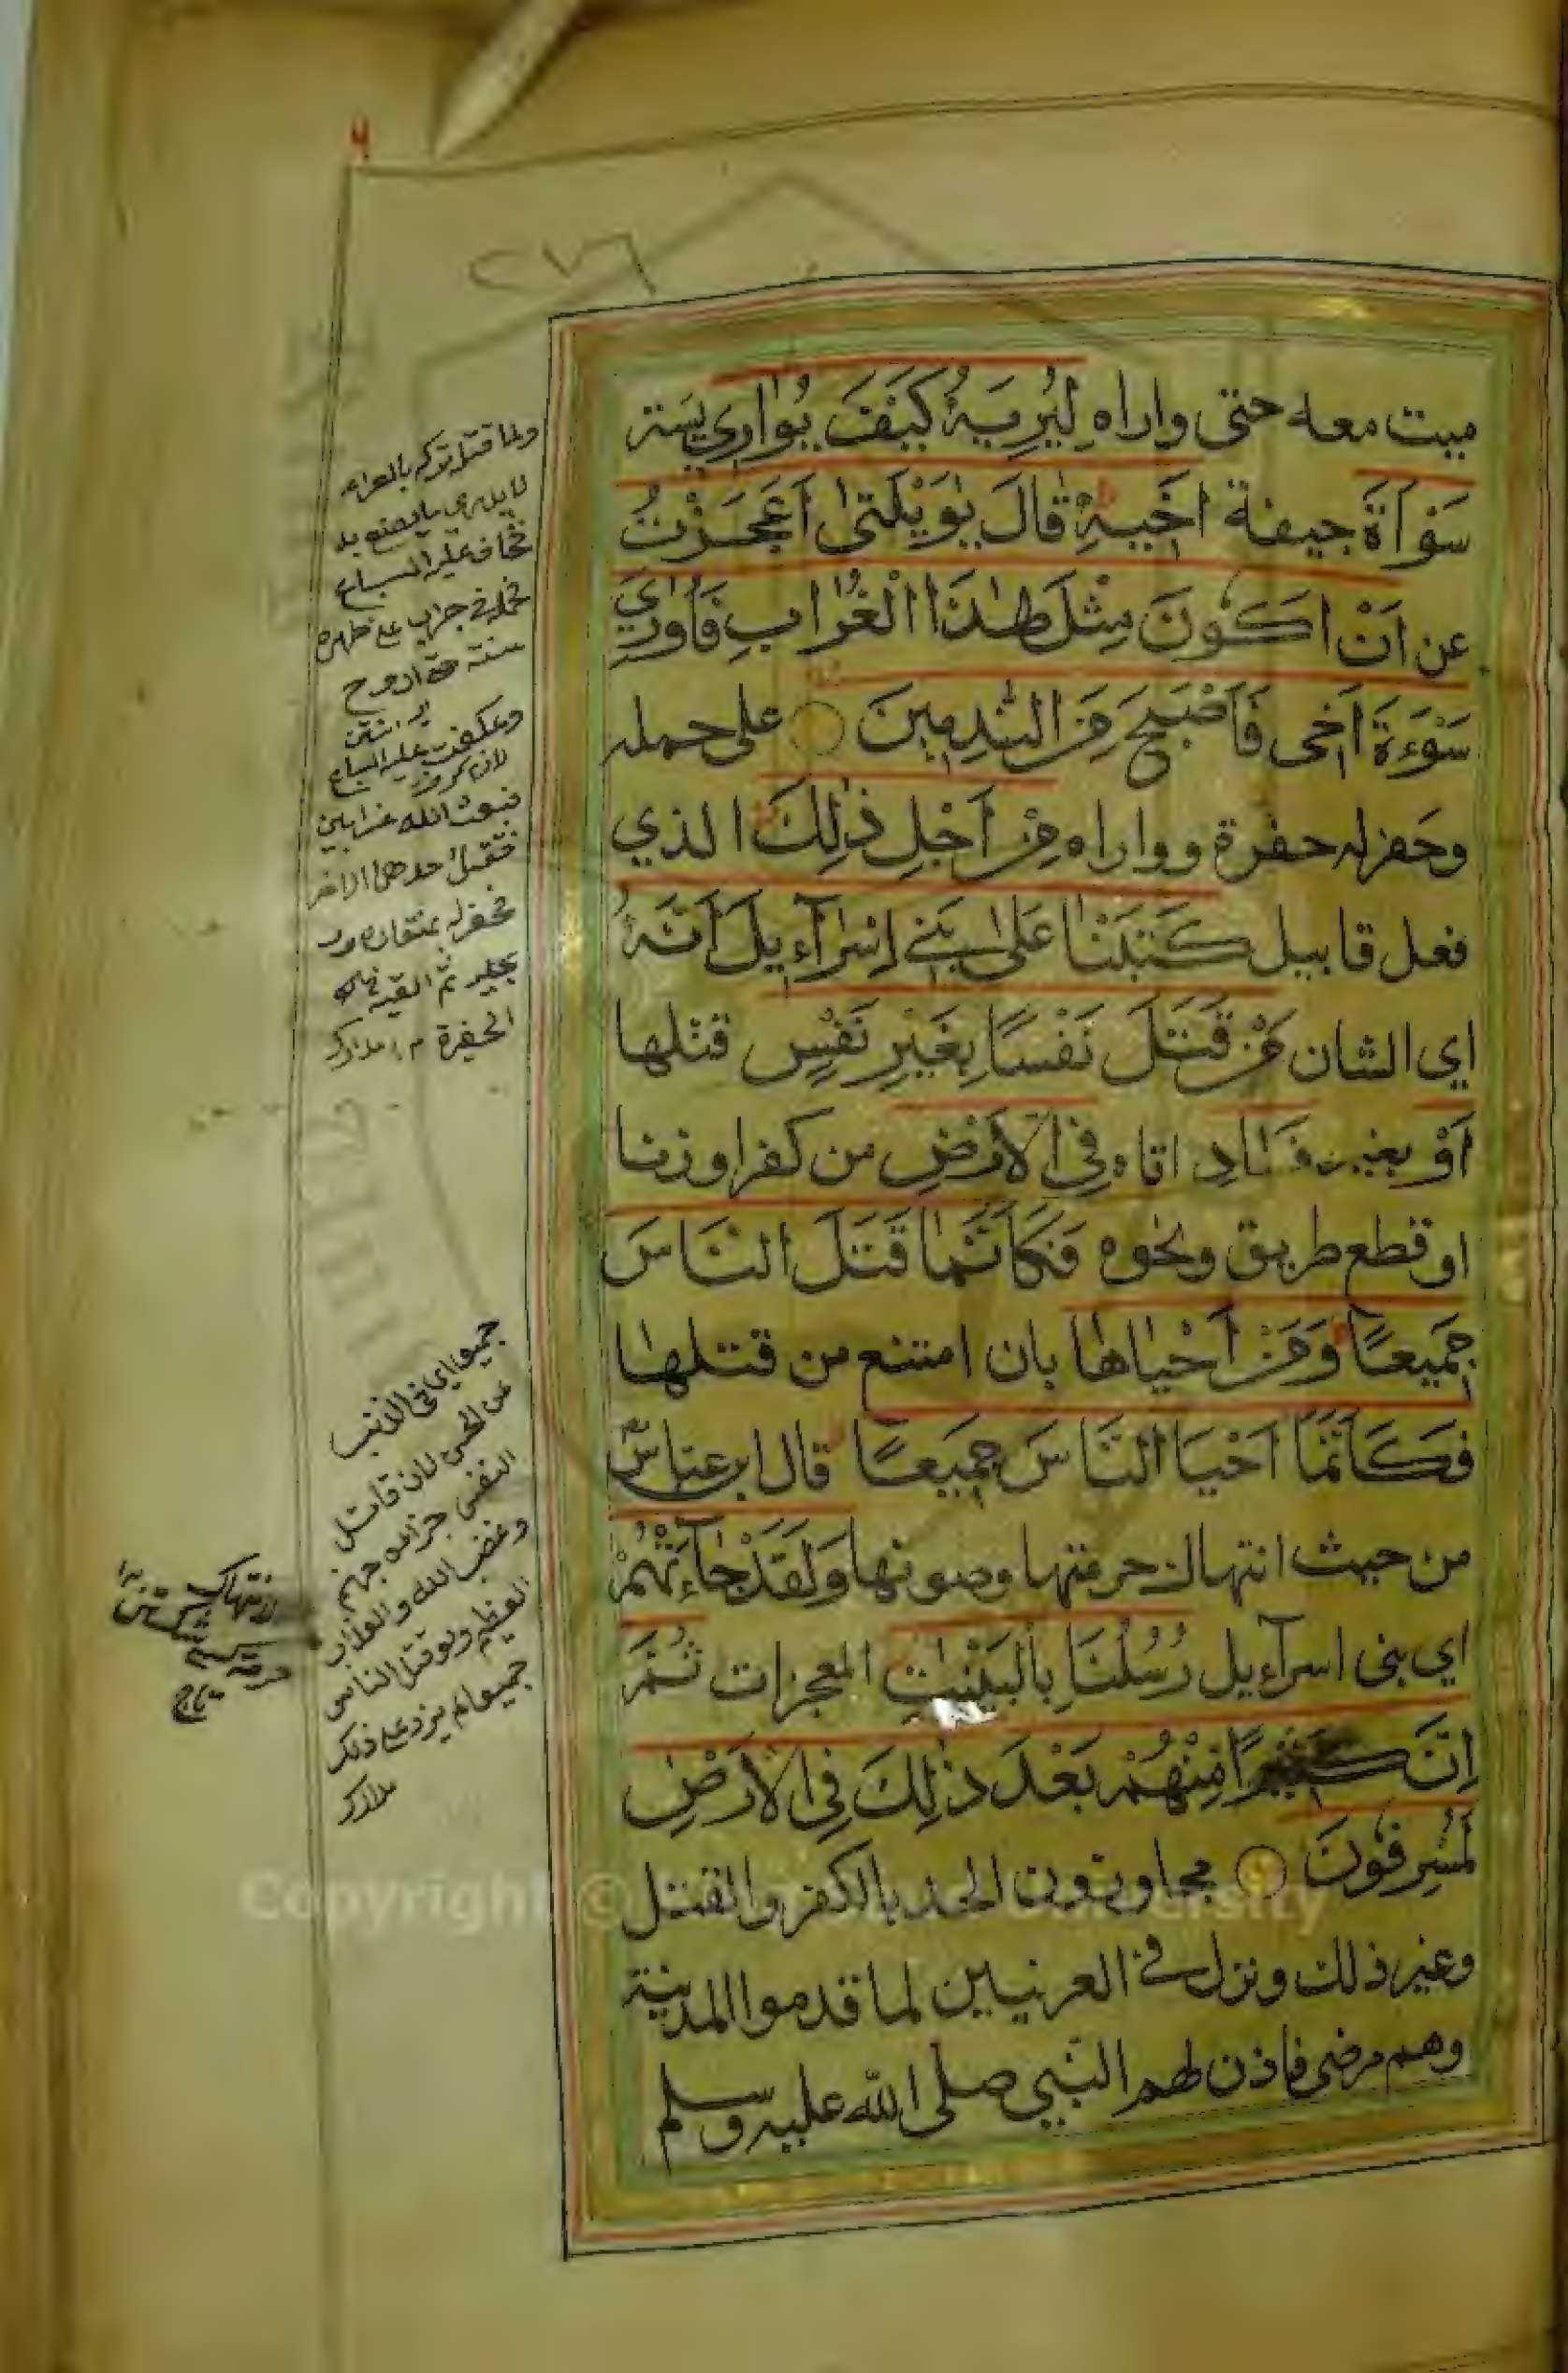 ميت معه حتى واراه لِيُرِيَهُ كَيْفَ يُوَارِي يستر
سَوْاَةَ جيفة اَخِيهِ قَالَ يٰوَيْلَتٰى اَعَجَزْتُ
عن اَنْ اَكُونَ مِثْلَ هٰذَا الْغُرَابِ فَاُوَارِيَ
سَوْءَةَ اَخِى فَاَصْبَحَ مِنَ النّٰدِمِينَ على حمله
وحفر له حفرة وواراه مِنْ اَجْلِ ذٰلِكَ الذي
فعل قابيل كَتَبْنَا عَلٰى بَنِي اِسْرَآءِيلَ اَنَّهُ
اي الشان مَنْ قَتَلَ نَفْسًا بِغَيْرِ نَفْسٍ قتلها
اَوْ بغير فَسَادٍ اتاه فِي الْاَرْضِ من كفر او زنا
او قطع طريق ونحوه فَكَاَنَّمَا قَتَلَ النَّاسَ
جَمِيعًا وَمَنْ اَحْيَاهَا بان امتنع من قتلها
فَكَاَنَّمَا اَحْيَا النَّاسَ جَمِيعًا قال ابن عباس
من حيث انتهاك حرمتها وصونها وَلَقَدْ جَآءَتْهُمْ
اي بنى اسرآءيل رُسُلُنَا بِالْبَيِّنٰتِ المعجزات ثُمَّ
اِنَّ كَثِيرًا مِنْهُمْ بَعْدَ ذٰلِكَ فِي الْاَرْضِ
لَمُسْرِفُونَ مجاوزون الحد بالكفر والقتل
وغير ذلك ونزل في العرنيين لما قدموا المدينة
وهم مرضى فاذن لهم النبي صلى الله عليه وسلم
ولما قتله تركه بالعراء
لا يدري ما يصنع به
فخاف عليه السباع
فحمله في جراب على ظهره
سنة حتى اروح
وعكفت عليه السباع
فبعث الله غرابين
فقتل احدهما الاخر
فحفر له بمنقاره و
برجليه ثم القيه في
الحفرة مدارك
جميعا اي في الذنب
عن الحسن لان قاتل
النفس جزاؤه جهنم
وغضب الله والعذاب
العظيم ولو قتل الناس
جميعا لم يزد على ذلك
مدارك
الانتهاك
تاج
Copyright © University